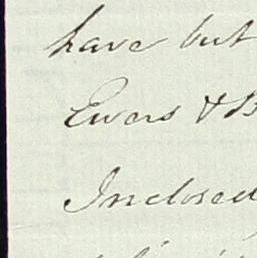 have but
Ewers & B
Inclosed